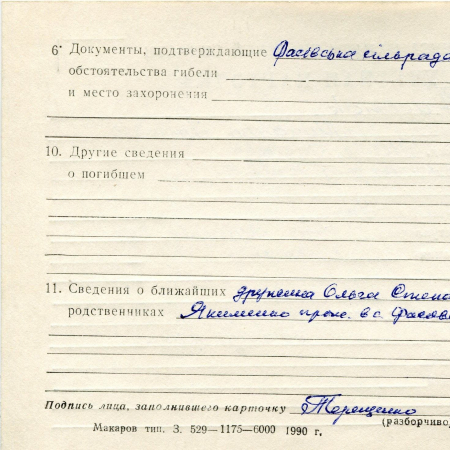 6* Документы, подтверждающие Фасівська сільрада
обстоятельства гибели
и место захоронения
10. Другие сведения
о погибшем
11. Сведения о ближайших дружина Ольга Степа
родственниках Якименко прож. в с. Фасова
Подпись лица, заполнившего карточку Терещенко
(разборчиво)
Макаров тип. З. 529—1175—6000 1990 г.